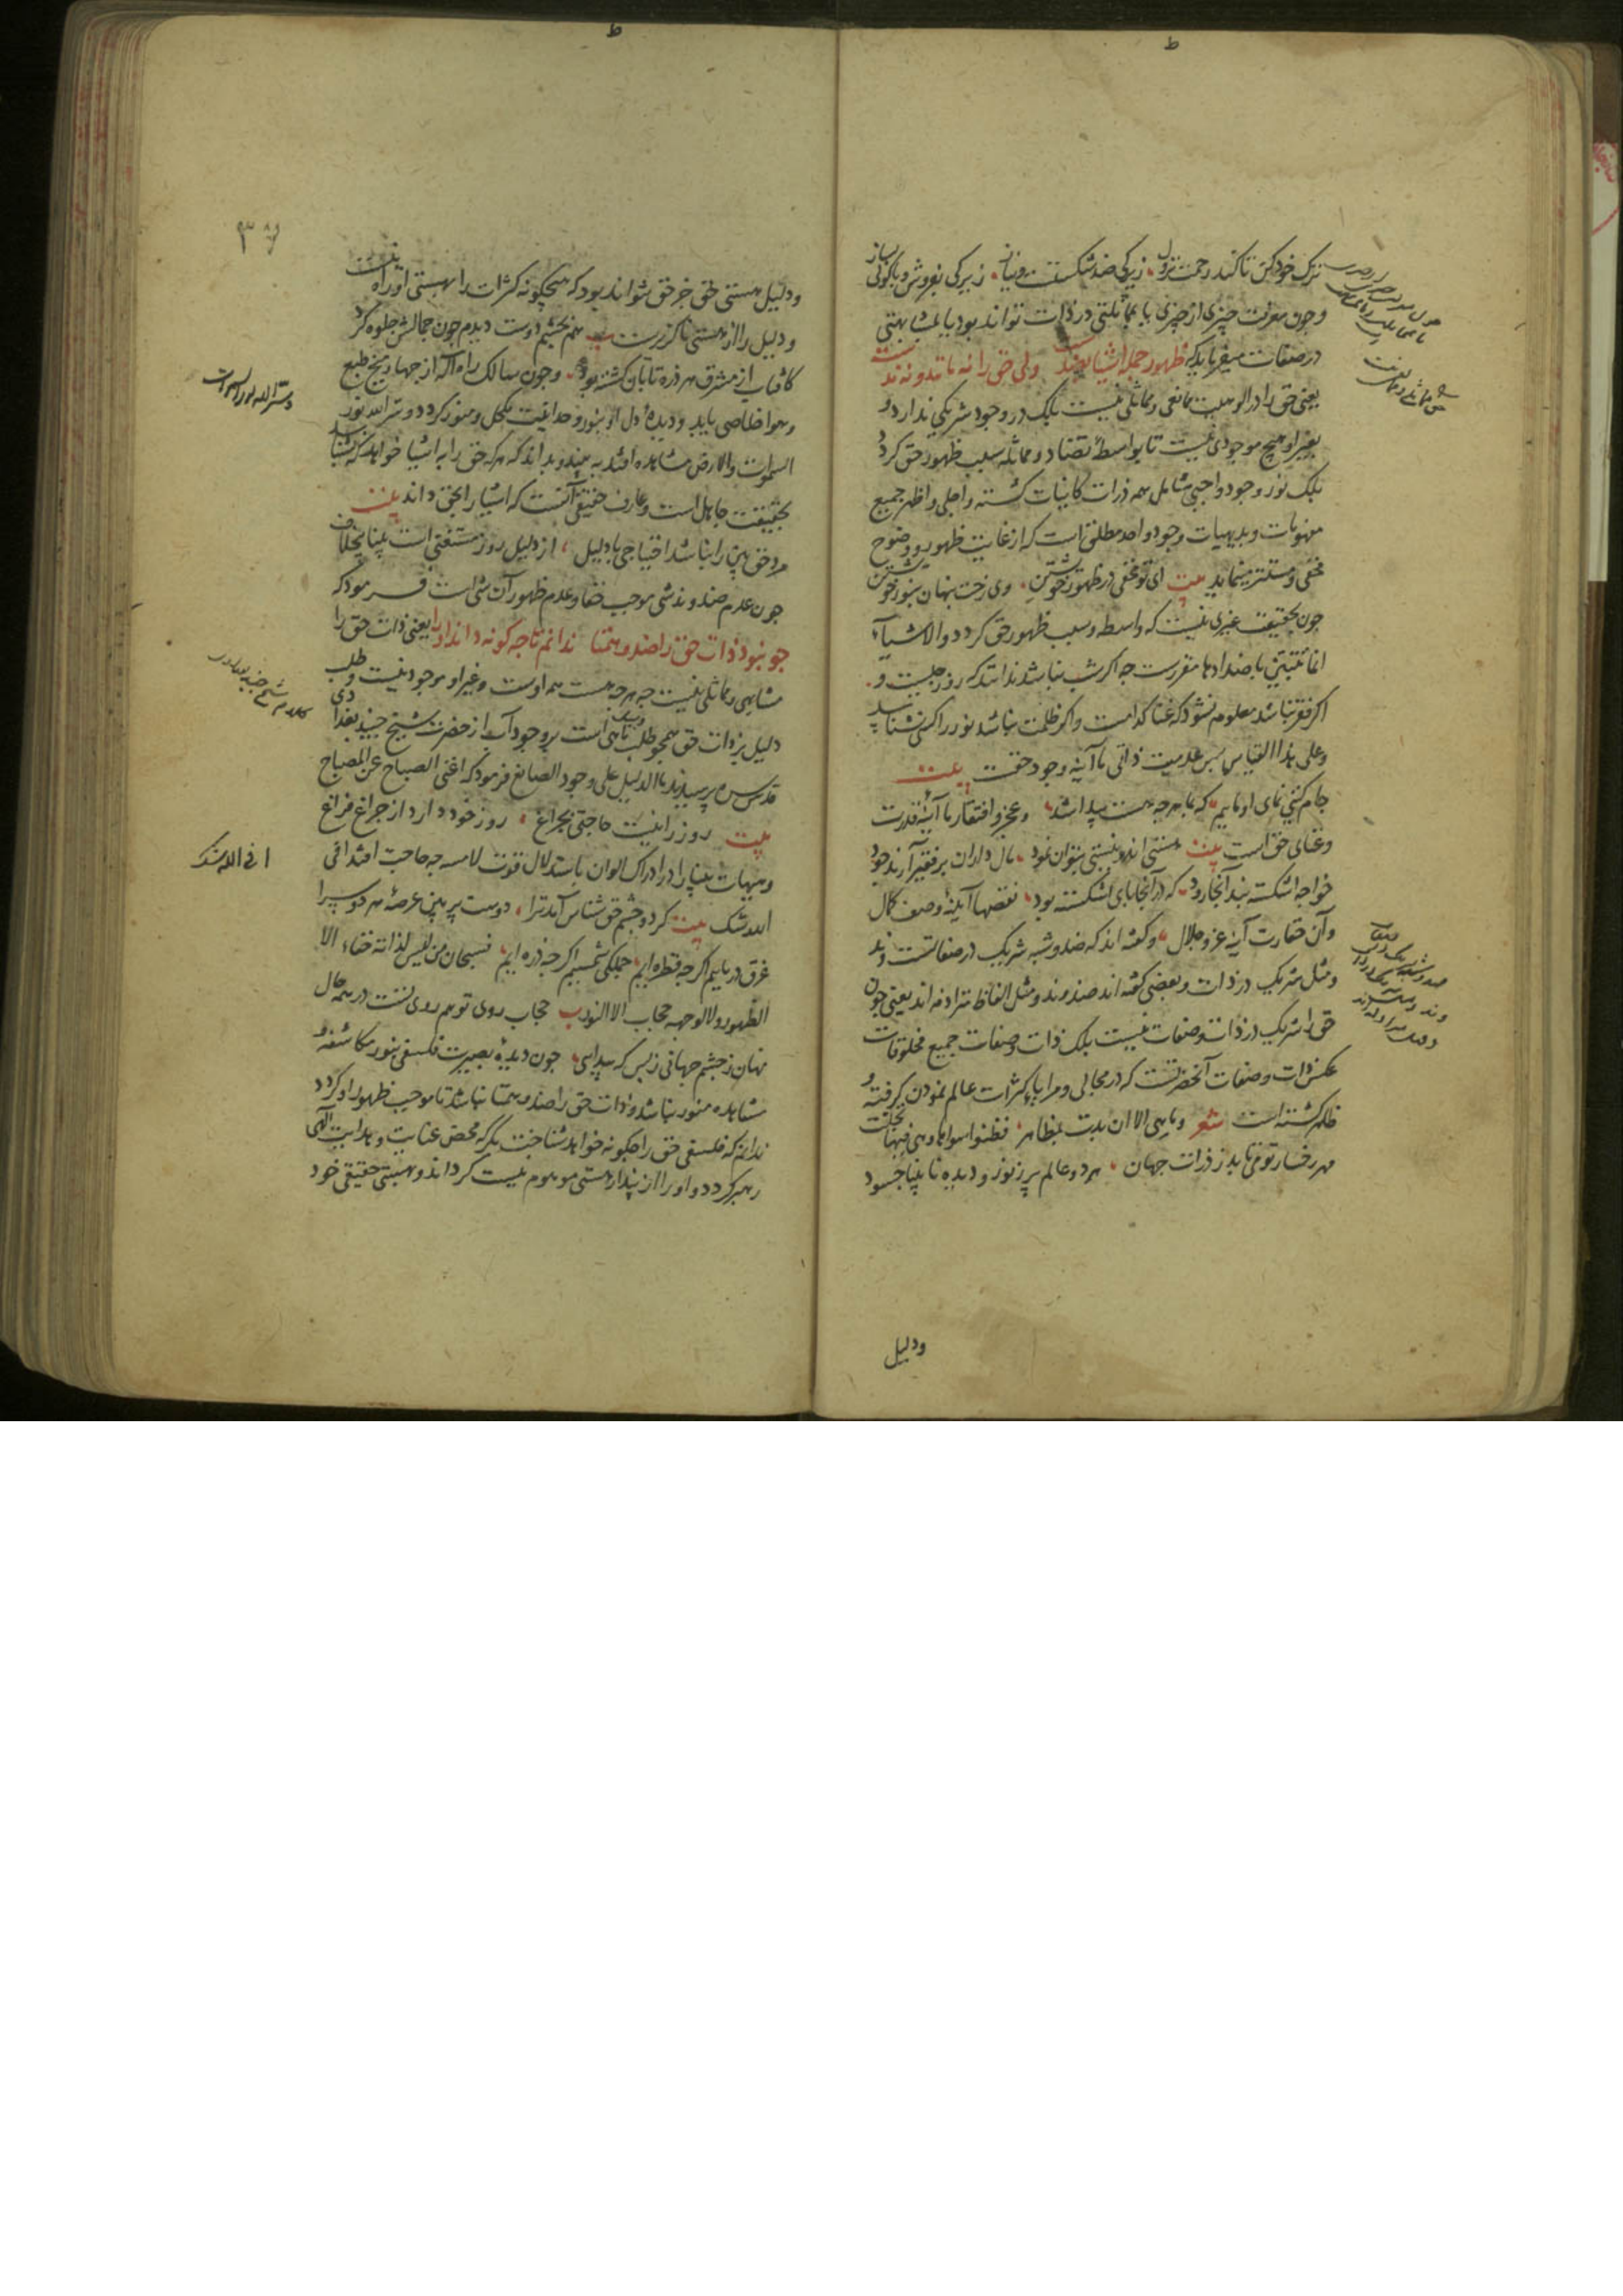 ترک خود کن تا کند رحمت نزول زیرکی ضد شکستست و نیاز زیرکی بفروش و با کولی بساز
و چون معرفت چیزی از چیزی یا بمماثلتی در ذات تواند بود یا بمشابهتی
در صفات میفرماید که ظهور جمله اشیا بضد است ولی حق را نه مانند و نه ندست
یعنی حق را در الوهیت مانعی و مماثلی نیست بلک در وجود شریکی ندارد و
بغیر او هیچ موجودی نیست تا بواسطه تضاد و مماثله سبب ظهور حق کردد
بلک نور وجود واجبی شامل همه ذرات کاینات کشته و اجلی و اظهر جمیع
مفهومات و بدیهیات وجود واحد مطلق است که از غایت ظهور و وضوح
مخفی و مستتر مینماید بیت ای تو مخفی در ظهور خویشتن وی رخت پنهان بنور خویشتن
چون بحقیقت غیری نیست که واسطه و سبب ظهور حق کردد والاشیاء
انما تتبین باضدادها مقررست چه اکر شب نباشد ندانند که روز چیست و
اکر فقر نباشد معلوم نشود که غنا کدامست و اکر ظلمت نباشد نور را کسی نشناسد
و علی هذا القیاس پس عدمیت ذاتی ما آینه وجود حقست بیت
جام کیتی نمای او ماییم که بما هرچه هست پیدا شد و عجز و افتقار ما آینه قدرت
و غنای حق است بیت هستی اندر نیستی بتوان نمود مال داران بر فقیر آرند جود
خواجه اشکسته بند آنجا رود که در آنجا پای اشکسته بود نقصها آینه وصف کمال
وآن حقارت آینه عز و جلال و کفته اند که ضد و شبه شریک در صفاتست و ند
و مثل شریک در ذات و بعضی کفته اند ضد و ند و مثل الفاظ مترادفه اند یعنی چون
حق را شریک در ذات و صفات نیست بلک ذات و صفات جمیع مخلوقات
عکس ذات و صفات آنحضرتست که در مجالی و مرایاء کثرات عالم نمودن کرفته و
ظاهر کشته است شعر و ما هی الا ان بدت بمظاهر فظنوا سواها و هی فیها تجلت
مهر رخسار تو می تابد ز ذرات جهان هر دو عالم پر ز نور و دیده نابینا چسود
ودلیل
۳۷
و دلیل هستی حق جز حق نتواند بود که هیچکونه کثرات را بهستی او راه نیست
و دلیل را از هستی ناکزیرست بیت هم بچشم دوست دیدم چون جمالش جلوه کرد
کافتاب از مشرق هر ذره تابان کشته بود و چون سالک راه اله از چهار میخ طبع
و هوا خلاصی یابد و دیده دل او بنور وحدانیت مکحل و منور کردد و سر الله نور
السموات والارض مشاهده افتد به بیند و بداند که هرکه حق را به اشیا خواهد که شناسد
بحقیقت جاهل است و عارف حقیقی آنست که اشیا را بحق داند بیت
مرد حق بین را نباشد احتیاجی با دلیل از دلیل روز مستغنی است بینا بی خلاف
چون عدم ضد و ند شی موجب خفا و عدم ظهور آن شی است فرمود که
چو نبود ذات حق را ضد و همتا ندانم تا چه کونه داند او را یعنی ذات حق را
مشابهی و مماثلی نیست چه هرچه هست همه اوست و غیر او موجود نیست و طلب
دلیل بر ذات حق همچو طلب ماهی است بر وجود آب از حضرت شیخ جنید بغدادی
قدس سره پرسیدند ما الدلیل علی وجود الصانع فرمود که اغنی الصباح عن المصباح
بیت روز را نیست حاجتی بچراغ روز خود دارد از چراغ فراغ
و هیهات بینا را در ادراک الوان باستدلال قوت لامسه چه حاجت افتد افی
الله شک بیت کرد و چشم حق شناس آمد ترا دوست پر بین عرصه هر دو سرا
غرق دریاییم اکرچه قطره ایم جملکی شمسیم اکرچه ذره ایم فسبحان من لیس لذاته خفاء الا
الظهور ولا لوجهه حجاب الا النور بیت حجاب روی تو هم روی تست در همه حال
نهان ز چشم جهانی ز بس که پیدایی چون دیده بصیرت فلسفی بنور مکاشفه و
مشاهده منور نباشد و ذات حق را ضد و همتا نباشد تا موجب ظهور او کردد
ندانم که فلسفی حق را چکونه خواهد شناخت مکر که محض عنایت و هدایت الهی
رهبر کردد و او را از پندار هستی موهوم نیست کرداند و بهستی حقیقی خود
سر الله نور السموات
کلام شیخ جنید بغدادی
افی الله شک